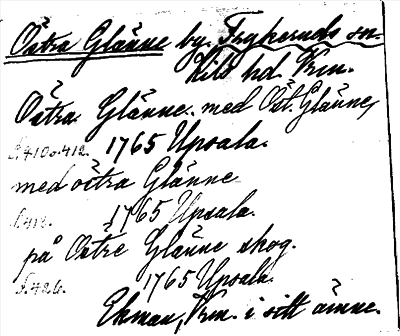 Östra Glänne by. Frykeruds sn.
Kils hd. Vrm.
Östra Glänne, med Öst. Glänne,
S. 410 o. 412. 1765 Upsala.
med östra Glänne
S. 412. 1765 Upsala.
på Östre Glänne skog.
S. 426. 1765 Upsala.
Ekman, Vrm. i sitt ämne.